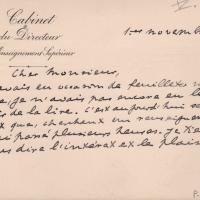 Cabinet
du Directeur
Enseignement Supérieur
1er novemb
Cher Monsieur,
avais eu occasion de feuilleter
je n'avais pas encore eu le
de la lire. C'est aujourd'hui
que, cherchant un renseigne
passé plusieurs heures. Je tie
dire l'intérêt et le plais